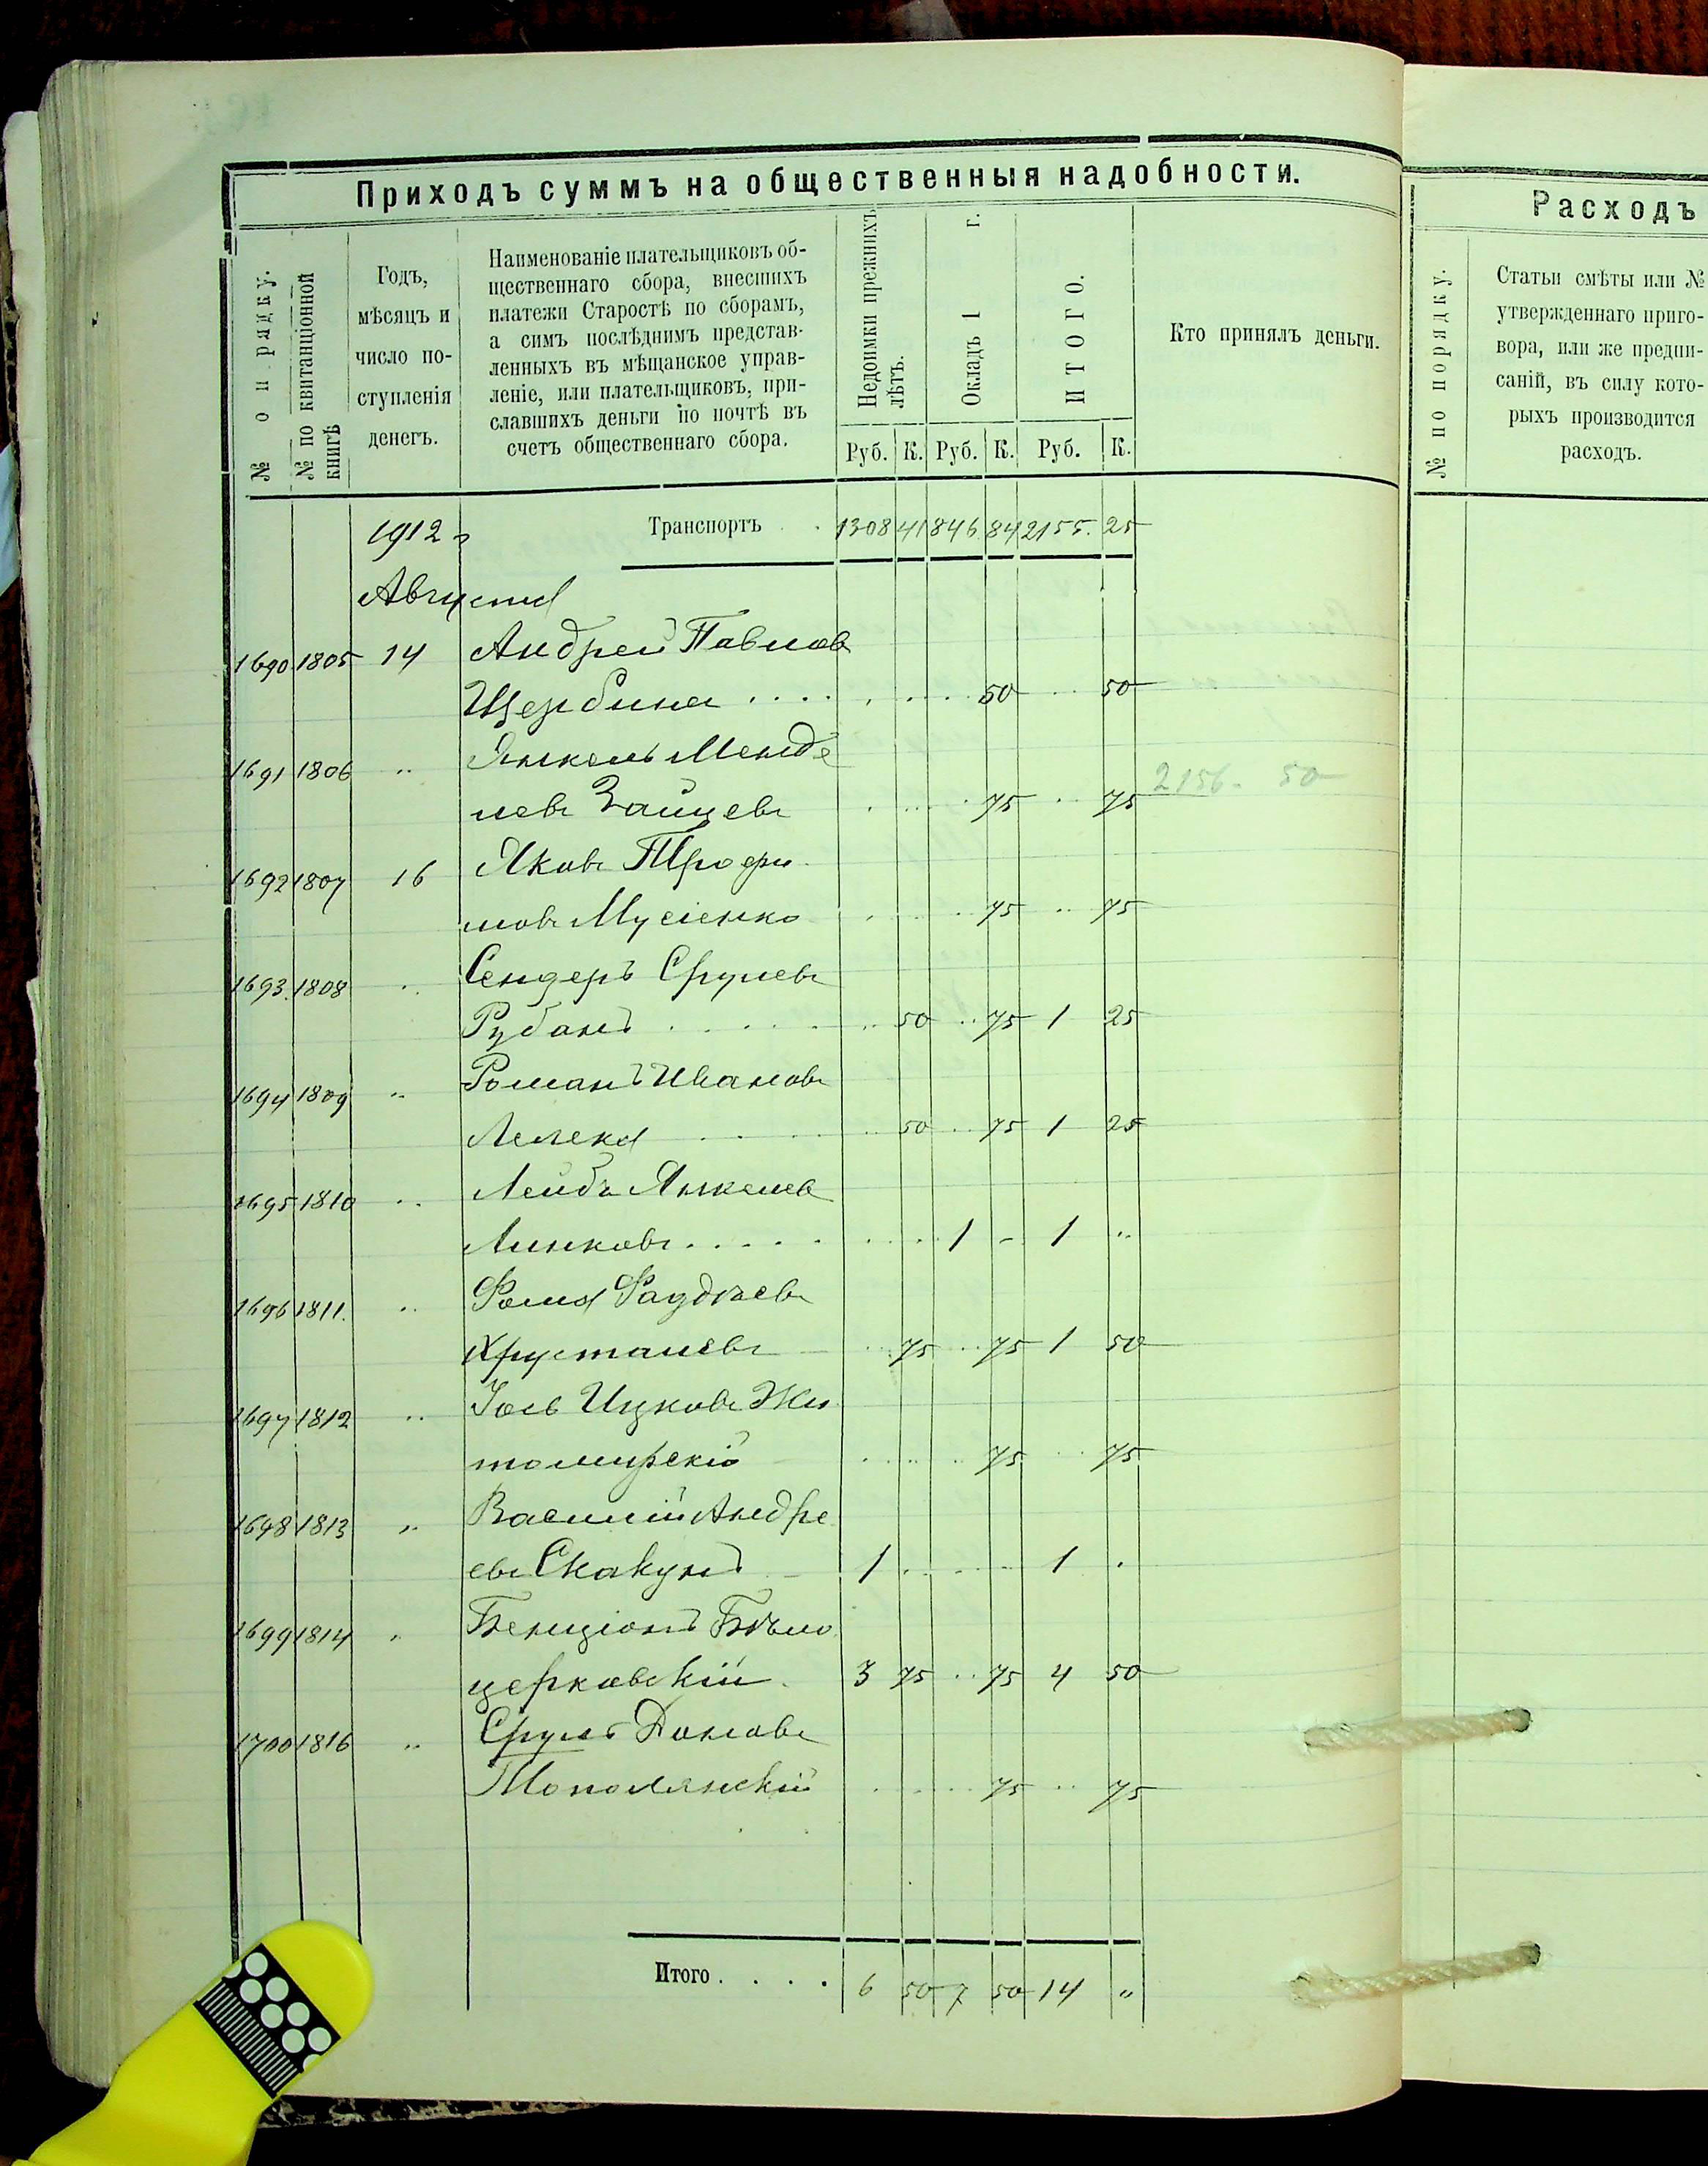 Приходъ суммъ на общественныя надобности.
№ о п рядку.
№ по квитанціонной книгѣ
Годъ,
мѣсяцъ и
число по-
ступленія
денегъ.
Наименованіе плательщиковъ об-
щественнаго сбора, внесшихъ
платежи Старостѣ по сборамъ,
а симъ послѣднимъ представ-
ленныхъ въ мѣщанское управ-
леніе, или плательщиковъ, при-
славшихъ деньги по почтѣ въ
счетъ общественнаго сбора.
Недоимки прежнихъ лѣтъ.
Окладъ 1 г.
ИТОГО.
Кто принялъ деньги.
Руб. К. Руб. К. Руб. К.
1912 г Транспортъ 1308 41 846 84 2155. 25
Августа
1690 1805 14 Андрей Павлов
Щербина . . . . 50 50
1691 1806 " Янкель Менде
левъ Зайцевъ 75 75
2156 - 50
1692 1807 16 Яковъ Трофи
мовъ Мусіенко 75 75
1693 1808 " Сендеръ Срулевъ
Рубанъ 50 75 1 25
1694 1809 " Романъ Ивановъ
Лелека 50 75 1 25
1695 1810 " Лейбъ Янкелев
Линковъ . . . . 1 - 1 "
1696 1811. " Фома Фаддѣевъ
Хрусталевъ 75 75 1 50
1697 1812 " Іось Ицковъ Жи
томирскій 75 75
1698 1813 " Василий Андре
евъ Скакунъ 1 1
1699 1814 " Бенціонъ Бѣло
церковскій 3 75 75 4 50
1700 1816 " Сруль Доновъ
Тополянскій 75 75
Итого . . . . 6 50 7 50 14 "
Расходъ
№ по порядку.
Статьи смѣты или №
утвержденнаго приго-
вора, или же предпи-
саній, въ силу кото-
рыхъ производится
расходъ.